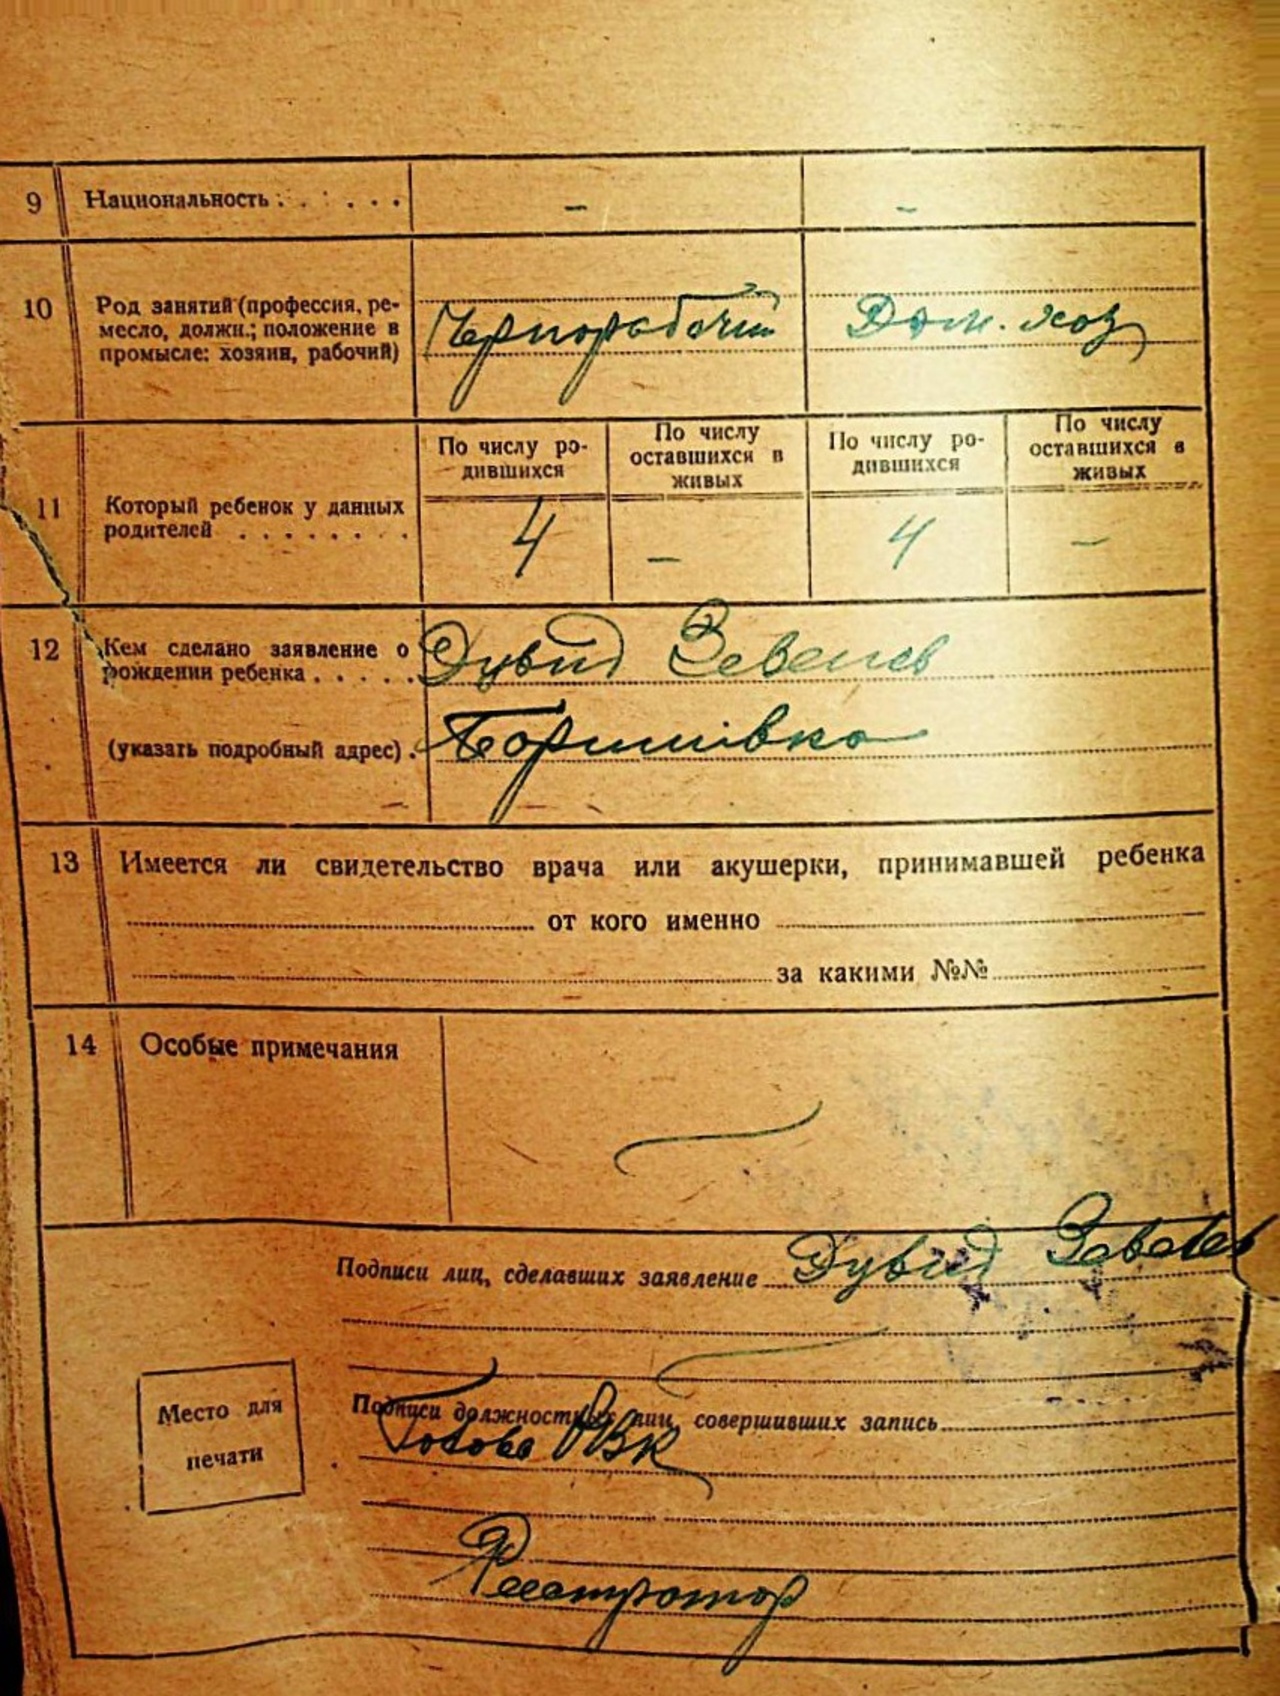 9 Национальность . . . . . . - -
10 Род занятий (профессия, ре-
месло, должн.; положение в
промысле: хозяин, рабочий)
Чернорабочий Дом. хоз
11 Который ребенок у данных
родителей . . . . . . . .
По числу ро-
дившихся
По числу
оставшихся в
живых
По числу ро-
дившихся
По числу
оставшихся в
живых
4 - 4 -
12 Кем сделано заявление о
рождении ребенка . . . . .
Дувид
(указать подробный адрес) .
13 Имеется ли свидетельство врача или акушерки, принимавшей ребенка
от кого именно
за какими №№
14 Особые примечания
Подписи лиц, сделавших заявление Дувид
Подписи должностных лиц, совершивших запись
Голова РВК
Место для
печати